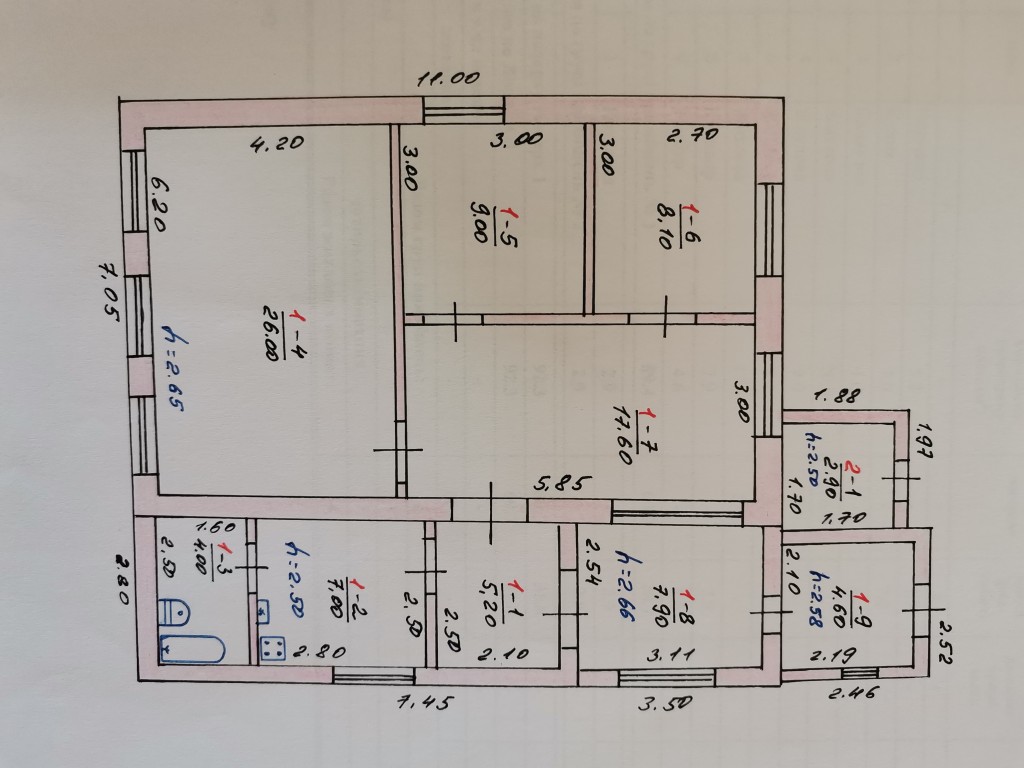 11.00
4.20
3.00
2.70
3.00
3.00
6.20
1-5
9.00
1-6
8.10
7.05
1-4
26.00
h=2.65
3.00
1-7
17.60
5.85
1.88
1.97
2-1
2.90
h=2.50
1.70
1.70
1.60
1-3
4.00
2.50
2.80
h=2.50
1-2
7.00
2.50
2.80
1-1
5,20
2.50
2.10
2.54
h=2.66
1-8
7.90
3.11
2.10
h=2.58
1-9
4.60
2.19
2.52
7.45
3.50
2.46